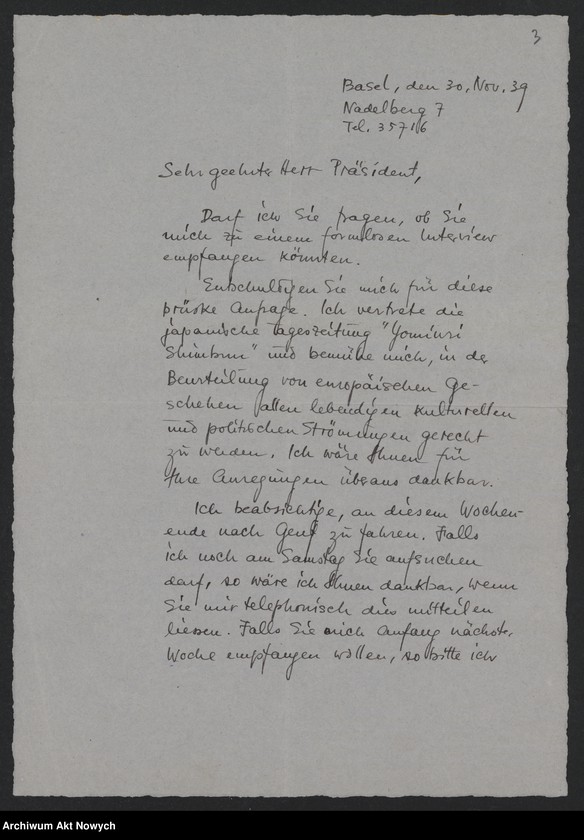 3
Basel, den 30. Nov. 39
Nadelberg 7
Tel. 35716
Sehr geehrter Herr Präsident,
Darf ich Sie fragen, ob Sie
mich zu einem formlosen Interview
empfangen könnten.
Entschuldigen Sie mich für diese
brüske Anfrage. Ich vertrete die
japanische Tageszeitung "Yomiuri
Shimbun" und bemühe mich, in der
Beurteilung von europäischen Ge-
schehen allen lebendigen kulturellen
und politischen Strömungen gerecht
zu werden. Ich wäre Ihnen für
Ihre Anregungen überaus dankbar.
Ich beabsichtige, an diesem Wochen-
ende nach Genf zu fahren. Falls
ich noch am Samstag Sie aufsuchen
darf, so wäre ich Ihnen dankbar, wenn
Sie mir telephonisch dies mitteilen
liessen. Falls Sie mich Anfang nächster
Woche empfangen wollen, so bitte ich
Archiwum Akt Nowych